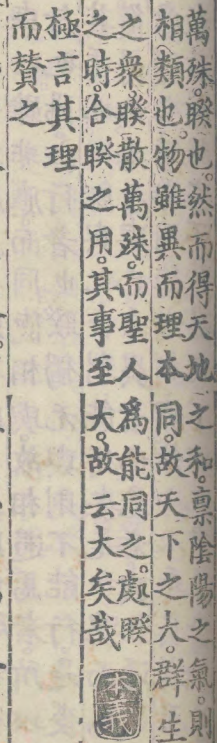 萬殊。睽也。然而得天地之和。稟陰陽之氣。則
相類也。物雖異而理本同。故天下之大。群生
之衆。睽散萬殊。而聖人爲能同之。處睽
之時。合睽之用。其事至大。故云大矣哉
極言其理
而贊之
本義